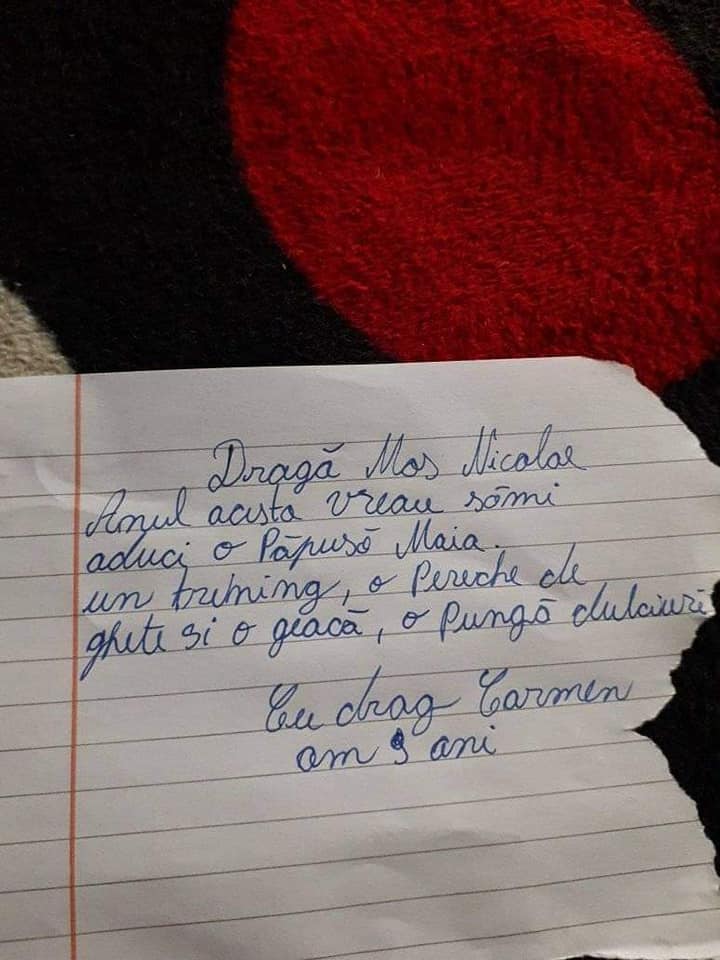 Dragă Mos Nicolae
Anul acista vreau sămi
aduci o Păpusă Maia.
un trening, o Pereche de
ghete si o geacă, o Pungă dulciuri
Cu drag Carmen
am ani